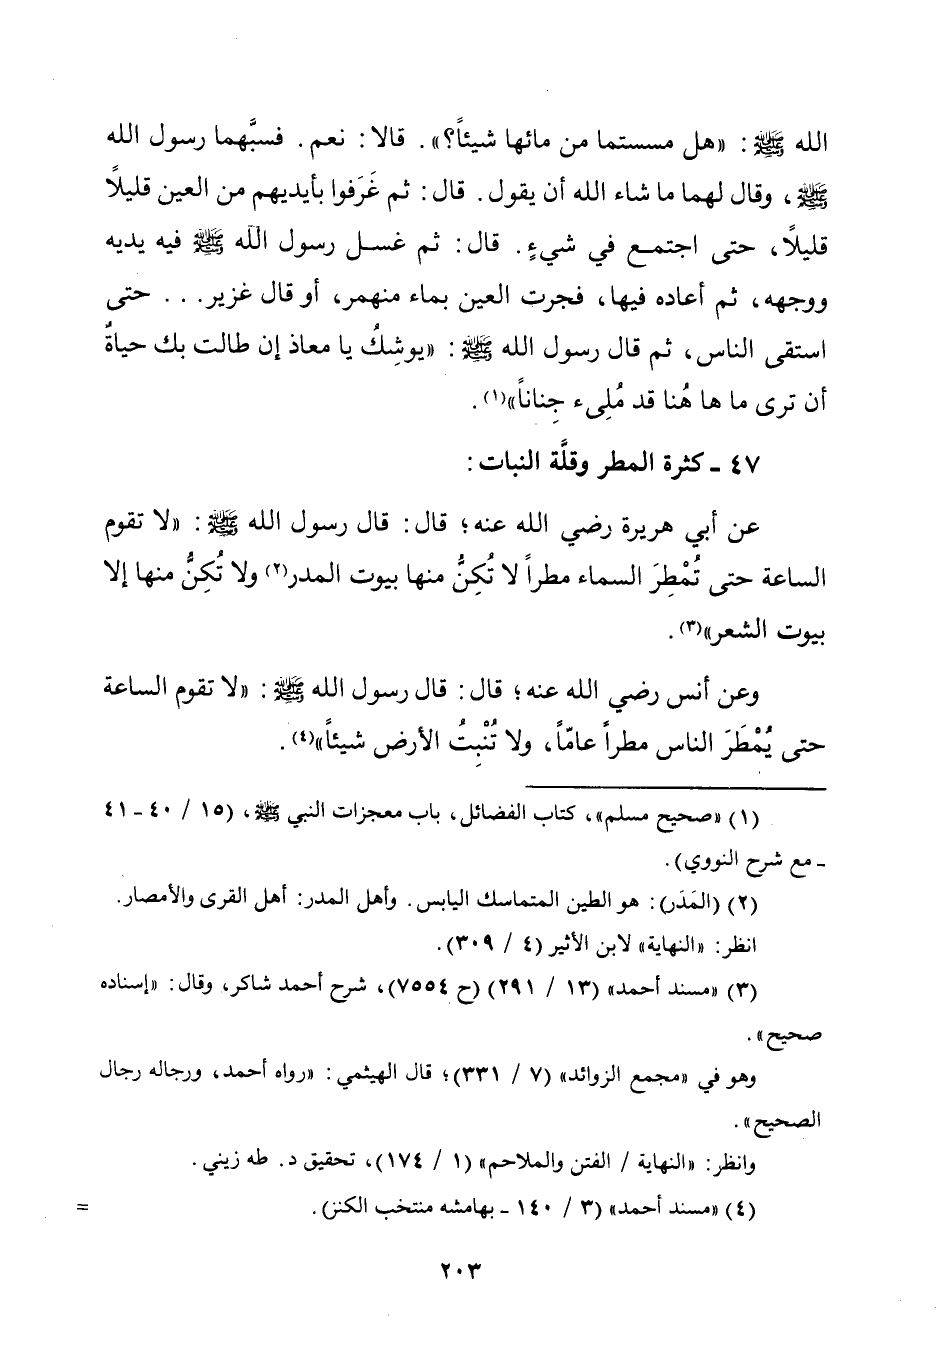 الله ﷺ: «هل مسستما من مائها شيئاً؟». قالا: نعم. فسبَّهما رسول الله
ﷺ، وقال لهما ما شاء الله أن يقول. قال: ثم غَرَفوا بأيديهم من العين قليلاً
قليلاً، حتى اجتمع في شيءٍ. قال: ثم غسل رسول الله ﷺ فيه يديه
ووجهه، ثم أعاده فيها، فجرت العين بماء منهمر، أو قال غزير... حتى
استقى الناس، ثم قال رسول الله ﷺ: «يوشِكُ يا معاذ إن طالت بك حياةٌ
أن ترى ما ها هُنا قد مُلِىء جِناناً»(١).
٤٧ ـ كثرة المطر وقلَّة النبات:
عن أبي هريرة رضي الله عنه؛ قال: قال رسول الله ﷺ: «لا تقوم
الساعة حتى تُمْطِرَ السماء مطراً لا تُكِنُّ منها بيوت المدر(٢) ولا تُكِنُّ منها إلا
بيوت الشعر»(٣).
وعن أنس رضي الله عنه؛ قال: قال رسول الله ﷺ: «لا تقوم الساعة
حتى يُمْطَرَ الناس مطراً عامّاً، ولا تُنْبِتُ الأرض شيئاً»(٤).
(١) «صحيح مسلم»، كتاب الفضائل، باب معجزات النبي ﷺ، (١٥ / ٤٠ ـ ٤١
ـ مع شرح النووي).
(٢) (المَدَر): هو الطين المتماسك اليابس. وأهل المدر: أهل القرى والأمصار.
انظر: «النهاية» لابن الأثير (٤ / ٣٠٩).
(٣) «مسند أحمد» (١٣ / ٢٩١) (ح ٧٥٥٤)، شرح أحمد شاكر، وقال: «إسناده
صحيح».
وهو في «مجمع الزوائد» (٧ / ٣٣١)؛ قال الهيثمي: «رواه أحمد، ورجاله رجال
الصحيح».
وانظر: «النهاية / الفتن والملاحم» (١ / ١٧٤)، تحقيق د. طه زيني.
(٤) «مسند أحمد» (٣ / ١٤٠ ـ بهامشه منتخب الكنز). =
٢٠٣